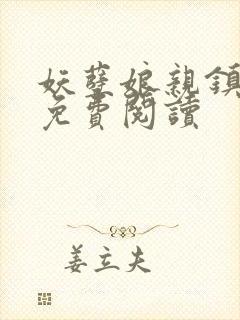 妖孽娘親鎮
免費閱讀
姜立夫